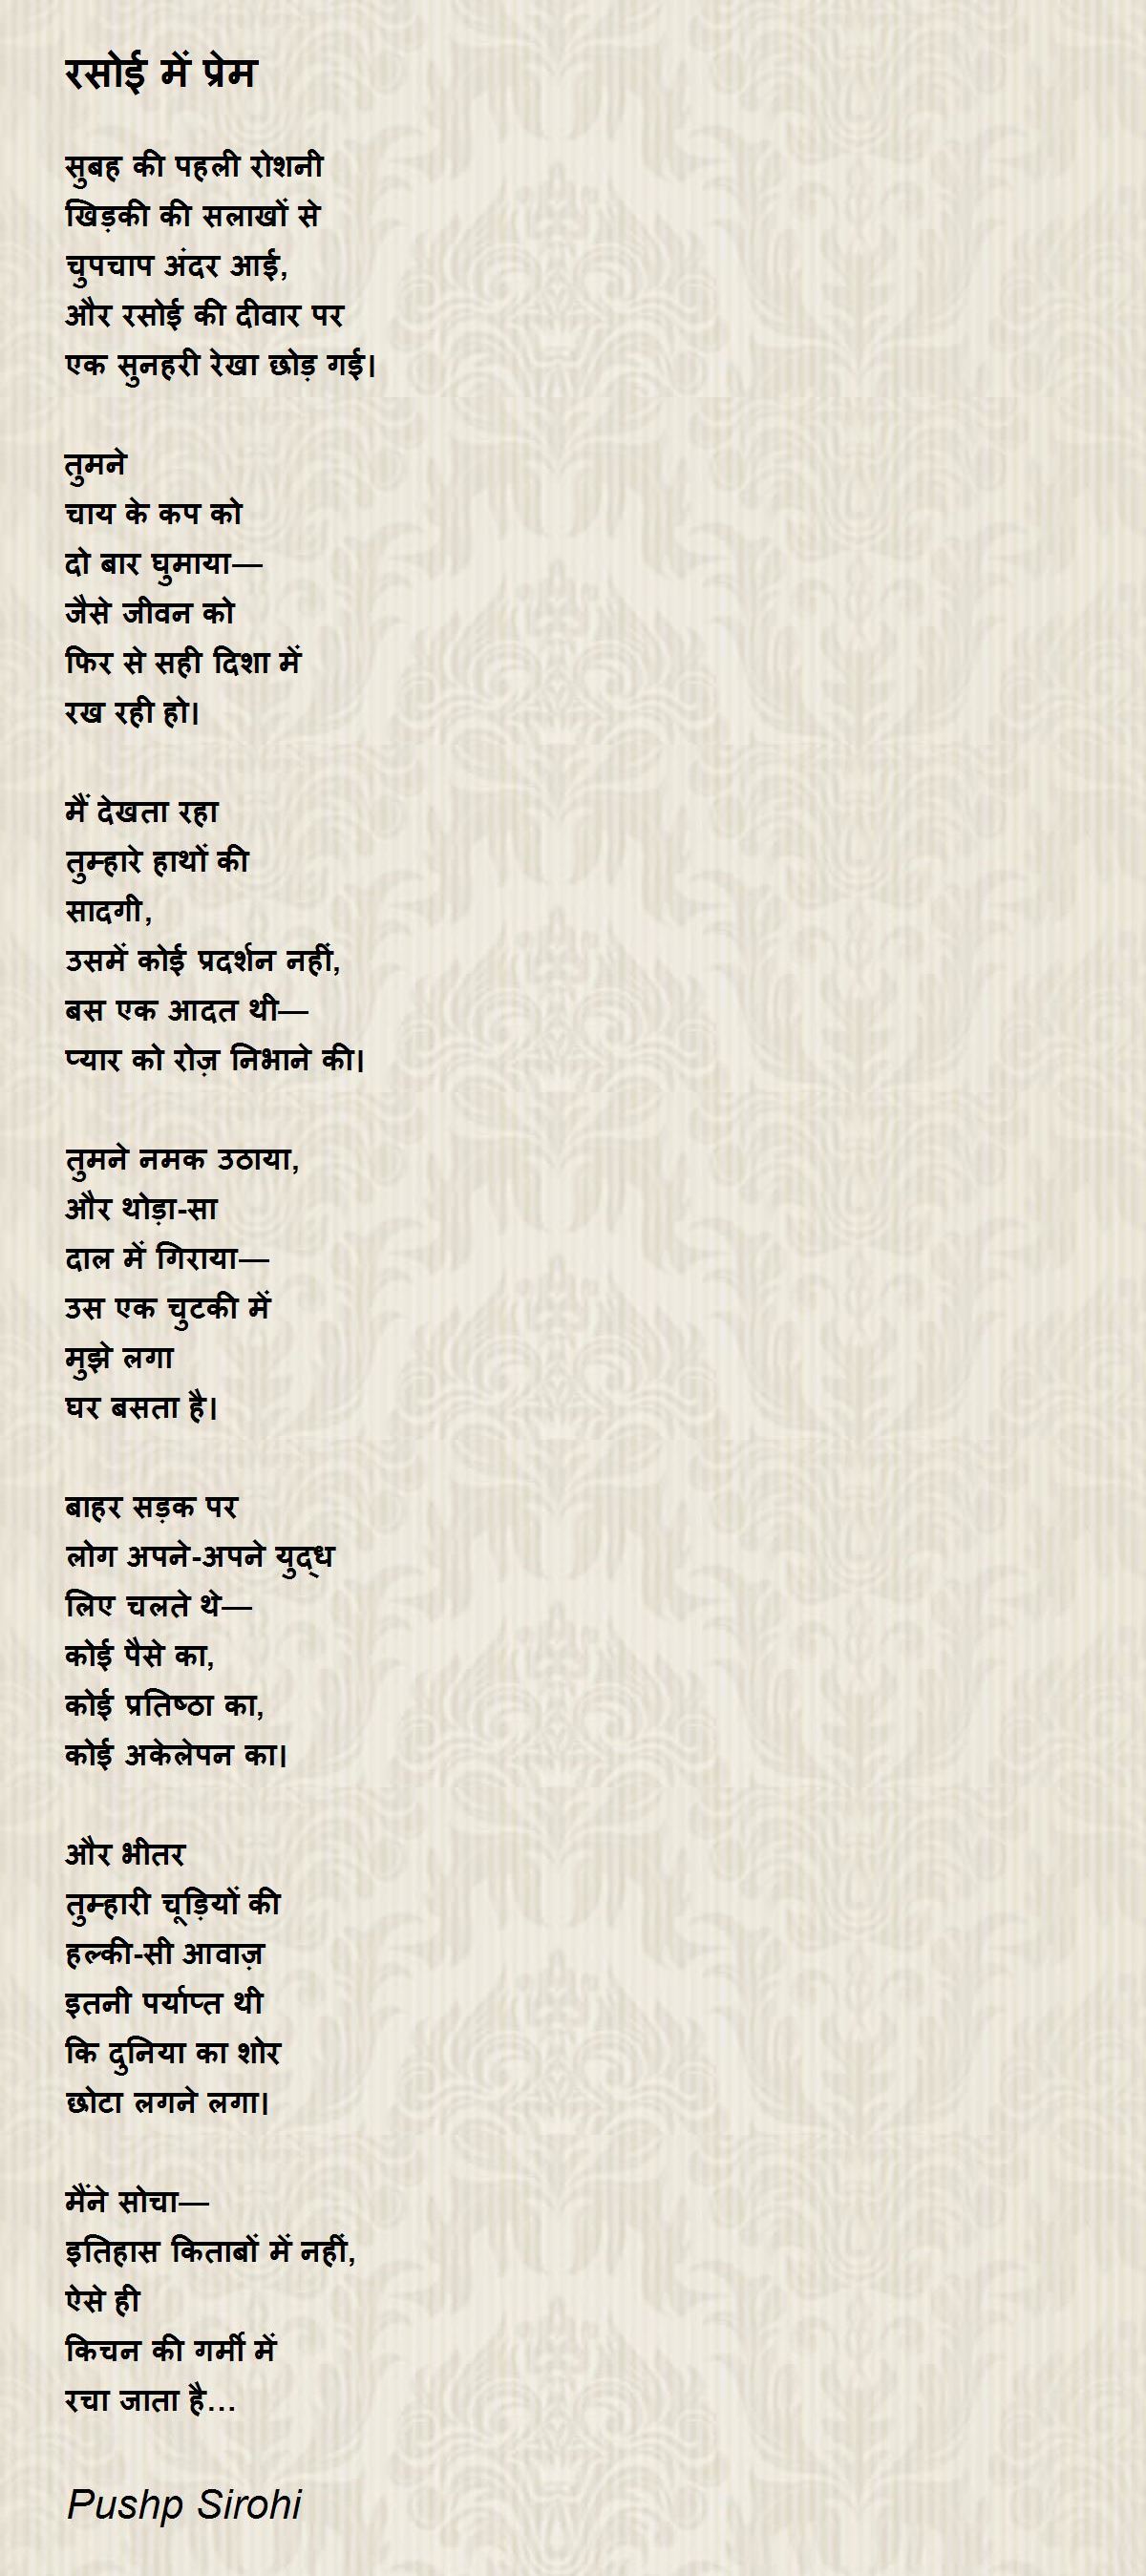 रसोई में प्रेम
सुबह की पहली रोशनी
खिड़की की सलाखों से
चुपचाप अंदर आई,
और रसोई की दीवार पर
एक सुनहरी रेखा छोड़ गई।
तुमने
चाय के कप को
दो बार घुमाया—
जैसे जीवन को
फिर से सही दिशा में
रख रही हो।
मैं देखता रहा
तुम्हारे हाथों की
सादगी,
उसमें कोई प्रदर्शन नहीं,
बस एक आदत थी—
प्यार को रोज़ निभाने की।
तुमने नमक उठाया,
और थोड़ा-सा
दाल में गिराया—
उस एक चुटकी में
मुझे लगा
घर बसता है।
बाहर सड़क पर
लोग अपने-अपने युद्ध
लिए चलते थे—
कोई पैसे का,
कोई प्रतिष्ठा का,
कोई अकेलेपन का।
और भीतर
तुम्हारी चूड़ियों की
हल्की-सी आवाज़
इतनी पर्याप्त थी
कि दुनिया का शोर
छोटा लगने लगा।
मैंने सोचा—
इतिहास किताबों में नहीं,
ऐसे ही
किचन की गर्मी में
रचा जाता है...
Pushp Sirohi